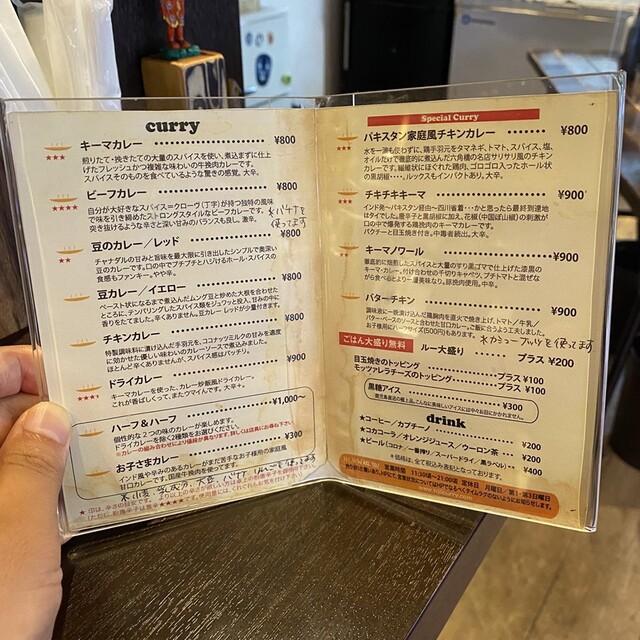 curry
キーマカレー ¥800
★★★
煎りたて・挽きたての大量のスパイスを使い、煮込まずに仕上
げたフレッシュかつ複雑な味わいの牛挽肉カレーです。
スパイスそのものを食べているような驚きの感覚。大辛。
ビーフカレー ¥800
★★★★
自分が大好きなスパイス=クローヴ(丁字)が持つ独特の風味
で味を引き締めたストロングスタイルなビーフカレーです。
突き抜けるような辛さと深い甘みのバランスも良し。激辛。
※バナナを
使ってます
豆のカレー/レッド ¥800
★★
チャナダルの甘みと旨味を最大限に引き出したシンプルで奥深い
豆のカレーです。口の中でプチプチとハジけるホール・スパイスの
食感もファンキー。やや辛。
豆カレー/イエロー ¥800
ペースト状になるまで煮込んだムング豆と炒めた大根を合わせた
ところに、テンパリングしたスパイス類をジュワッと投入。甘みの中に
香りをたてました。辛くありません。豆カレー レッドより少量付きます。
チキンカレー ¥800
特製調味料に漬け込んだ手羽元を、ココナッツミルクの甘みを濃度
に効かせた優しい味わいのカレーソースで煮込みました。
ほとんど辛くありませんが、スパイス感はバッチリ。
ドライカレー ¥900
キーマカレーを使った、カレー炒飯風ドライカレー。
これが香ばしくって、またウマイんです。大辛+。
ハーフ&ハーフ ¥1,000〜
個性的な2つの味のカレーが楽しめます。
ドライカレーを除く2種類をお選びください。
お子さまカレー ¥300
インド風や辛みのあるカレーがまだ苦手なお子様用の家庭風
甘口カレーです。国産牛挽肉を使用してます。
Special Curry
パキスタン家庭風チキンカレー ¥800
★★★
水を一滴も使わずに、鶏手羽元をタマネギ、トマト、スパイス、塩、
オイルだけで徹底的に煮込んだ六角橋の名店サリサリ風のチキン
カレーです。繊維状にほぐれた鶏肉、ゴロゴロ入ったホール状
の黒胡椒・・・・。ルックスもインパクトあり。大辛。
チキチキキーマ ¥900
インド発〜パキスタン経由〜四川省着・・・かと思ったら最終到達地
はタイでした。唐辛子と黒胡椒に加え、花椒(中国の山椒)の刺激が
口の中で爆発する鶏挽肉のキーマカレーです。
パクチーと目玉焼き付き。中毒者続出。大辛。
キーマノワール ¥900
★★
徹底的に焙煎したスパイスと大量のすり黒ゴマで仕上げた漆黒の
キーマ・カレー。付け合わせの千切りキャベツ、プチトマトと混ぜな
がら食べるとより一層美味なり。豚挽肉使用。中辛。
バターチキン ¥900
調味液に一晩漬け込んだ鶏胸肉を直火で焼き上げ、トマト/牛乳/
バター・ベースのソースと合わせた甘口カレー。ご飯に合うよう工夫しました。
お子様用にハーフサイズ(500円)もあります。
※カシューナッツを使ってます
ごはん大盛り無料 ルー大盛り プラス ¥200
目玉焼きのトッピング プラス ¥100
モッツァレラチーズのトッピング プラス ¥100
黒糖アイス ¥300
drink
★コーヒー/カプチーノ ¥200
★コカコーラ/オレンジジュース/ウーロン茶 ¥200
★ビール(コロナ/一番搾り/スーパードライ/黒ラベル) ¥400
*価格は、全て税込み表記となっております。
営業時間 11:30頃〜21:00頃 定休日 月曜日/第1・第3日曜日